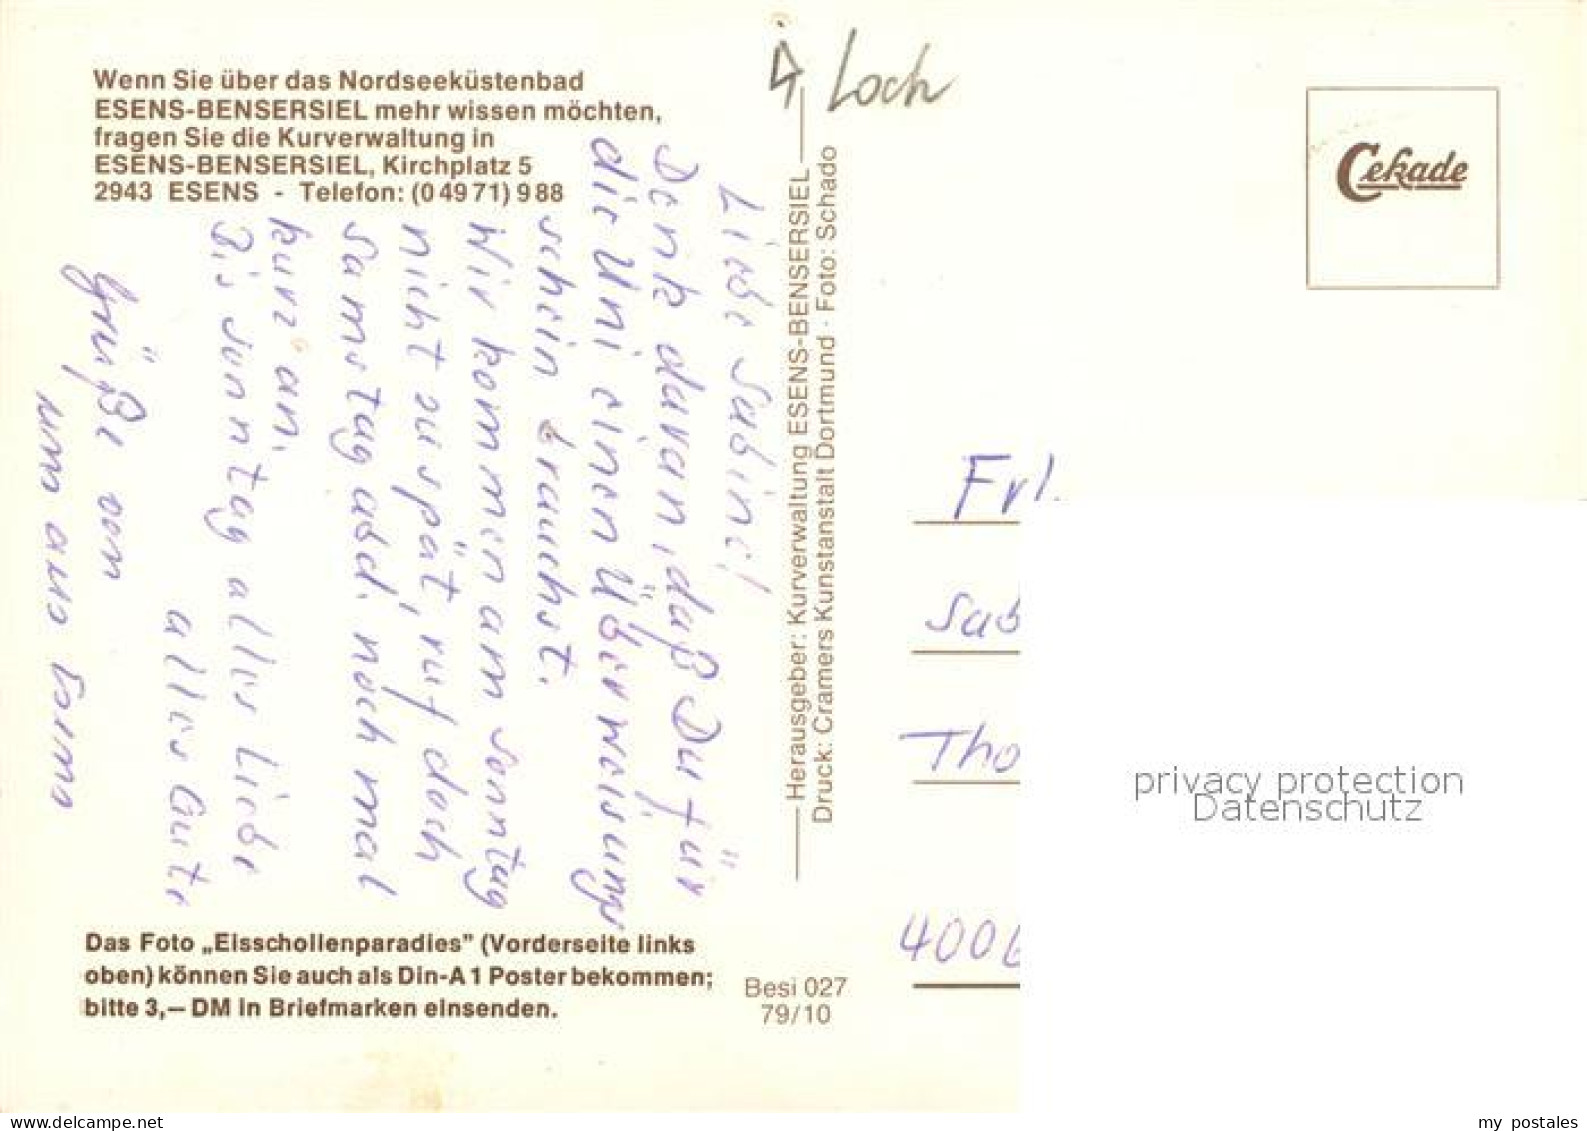 Wenn Sie über das Nordseeküstenbad
ESENS-BENSERSIEL mehr wissen möchten,
fragen Sie die Kurverwaltung in
ESENS-BENSERSIEL, Kirchplatz 5
2943 ESENS - Telefon: (0 49 71) 9 88
Loch
Cekade
Liebe Sabine!
Denk daran, daß Du für
die Uni einen Überweisungs
schein brauchst.
Wir kommen am Sonntag
nicht zu spät, ruf doch
Samstag abd. noch mal
kurz an.
Bis Sonntag alles Liebe
alles Gute
Grüße von
uns
Herausgeber: Kurverwaltung ESENS-BENSERSIEL
Druck: Cramers Kunstanstalt Dortmund · Foto: Schado
Frl.
Sab
Tho
4006
privacy protection
Datenschutz
Das Foto „Eisschollenparadies” (Vorderseite links
oben) können Sie auch als Din-A 1 Poster bekommen;
bitte 3,— DM in Briefmarken einsenden.
Besi 027
79/10
my postales
www.delcampe.net